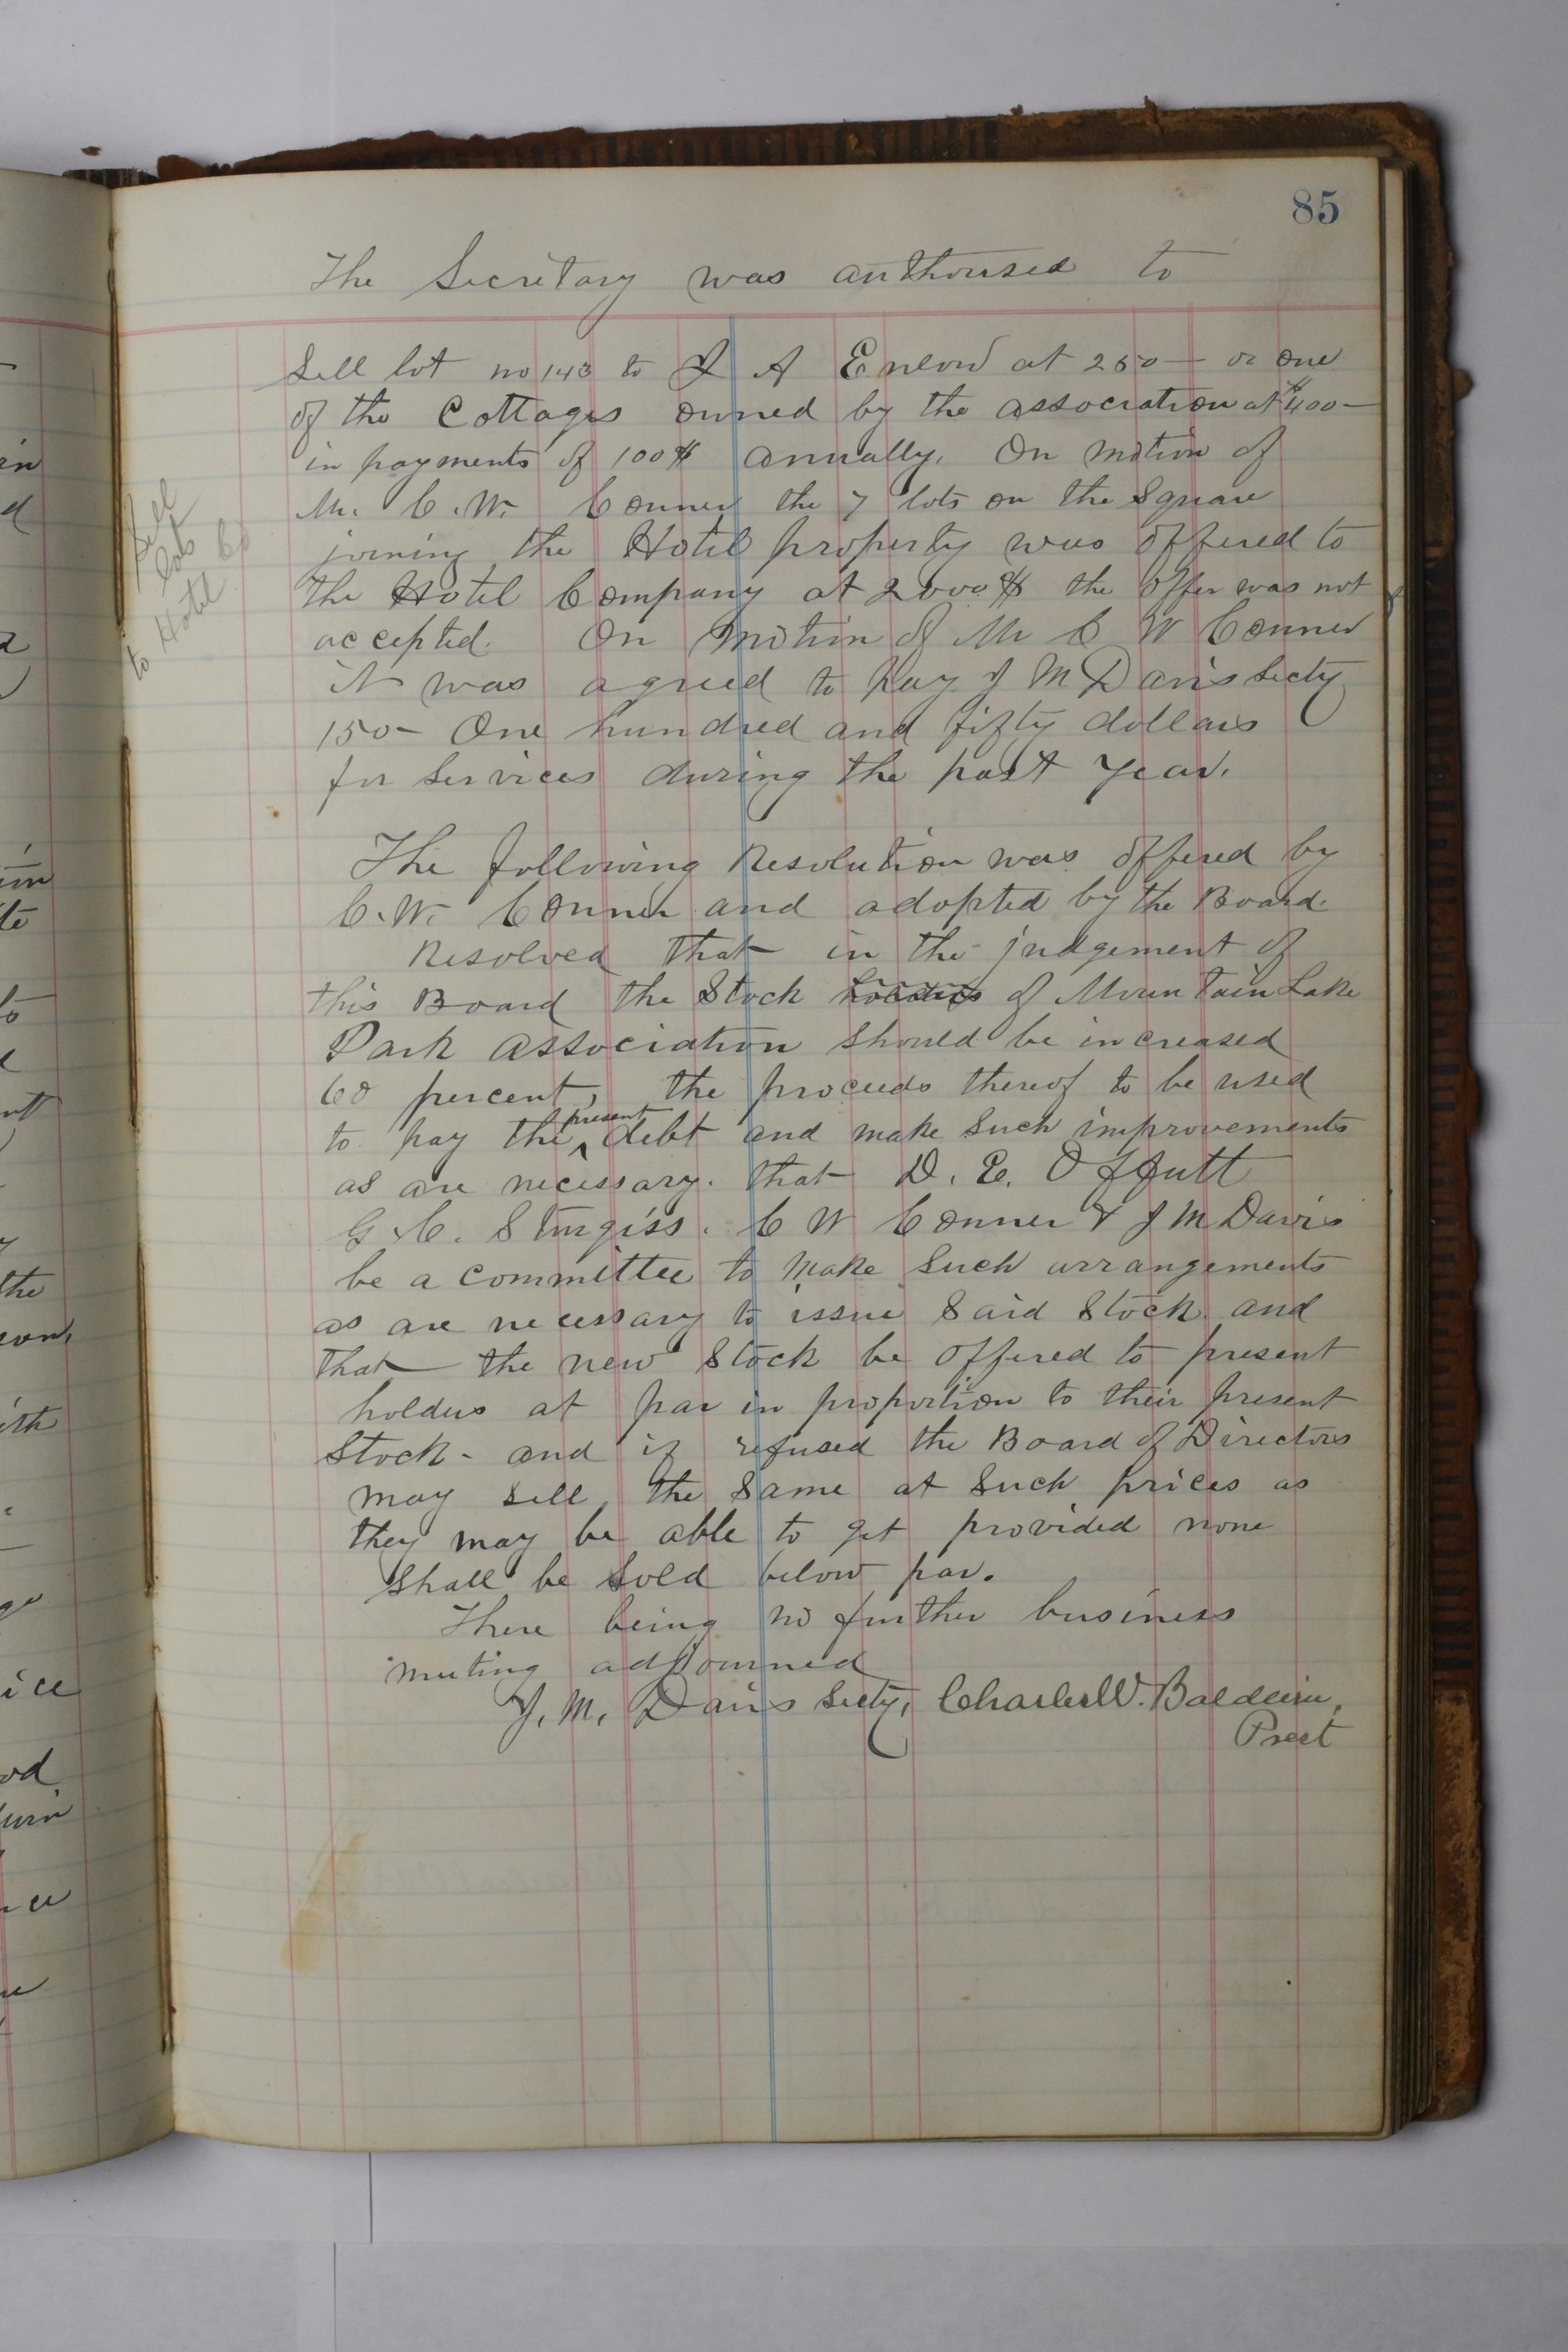 85
The Secretary was authorised to
Sell lot no 143 to I A Enlow at 250— or one
of the Cottages owned by the association at $400—
in payments of 100$ annually. On motion of
Mr. C. W. Conner the 7 lots on the Square
joining the Hotel property was offered to
the Hotel Company at 2000$ the offer was not
accepted. On motion of Mr C W Conner
it was agreed to pay J M Davis Secty
150— One hundred and fifty dollars
for Services during the past year.
Sell
Lots
to Hotel Co
The following Resolution was offered by
C. W. Conner and adopted by the Board.
Resolved that in the judgement of
this Board the Stock holders of Mountain Lake
Park Association should be increased
60 percent, the proceeds thereof to be used
to pay the present debt and make such improvements
as are necessary. that D. E. Offutt
G. C. Sturgiss. C W Conner & J M Davis
be a committee to make such arrangements
as are necessary to issue Said Stock and
that the new Stock be offered to present
holders at par in proportion to their present
Stock - and if refused the Board of Directors
may sell the same at such prices as
they may be able to get provided none
shall be sold below par.
There being no further business
meeting adjourned
J. M. Davis Secty, Charles W. Baldwin,
Prest